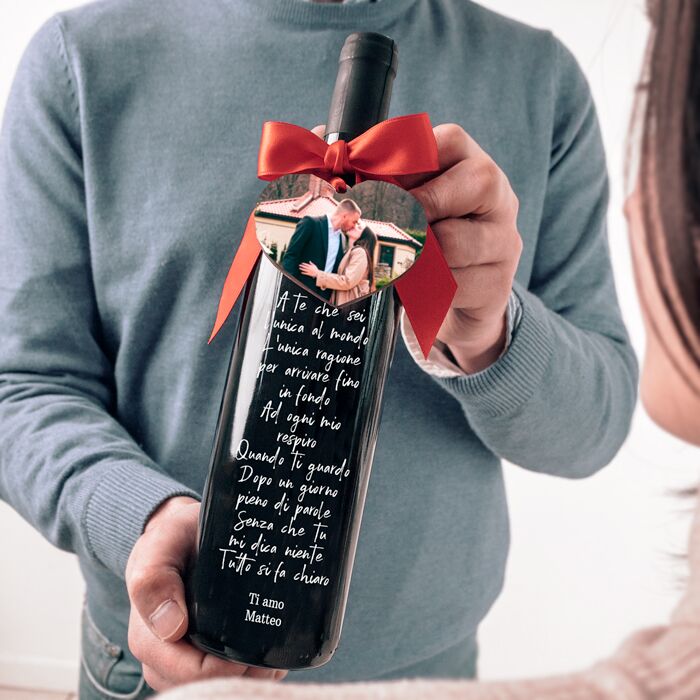 A te che sei
l'unica al mondo
L'unica ragione
per arrivare fino
in fondo
Ad ogni mio
respiro
Quando ti guardo
Dopo un giorno
pieno di parole
Senza che tu
mi dica niente
Tutto si fa chiaro
Ti amo
Matteo